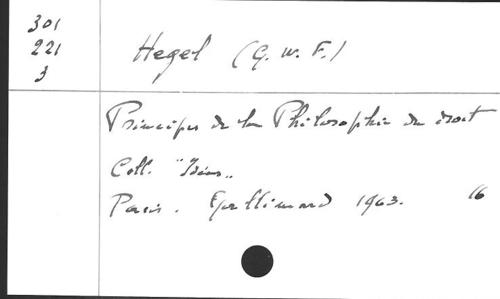 301
221
3
Hegel (G. W. F.)
Principes de la Philosophie du droit
Coll. "Idées"
Paris. Gallimard 1963. 16